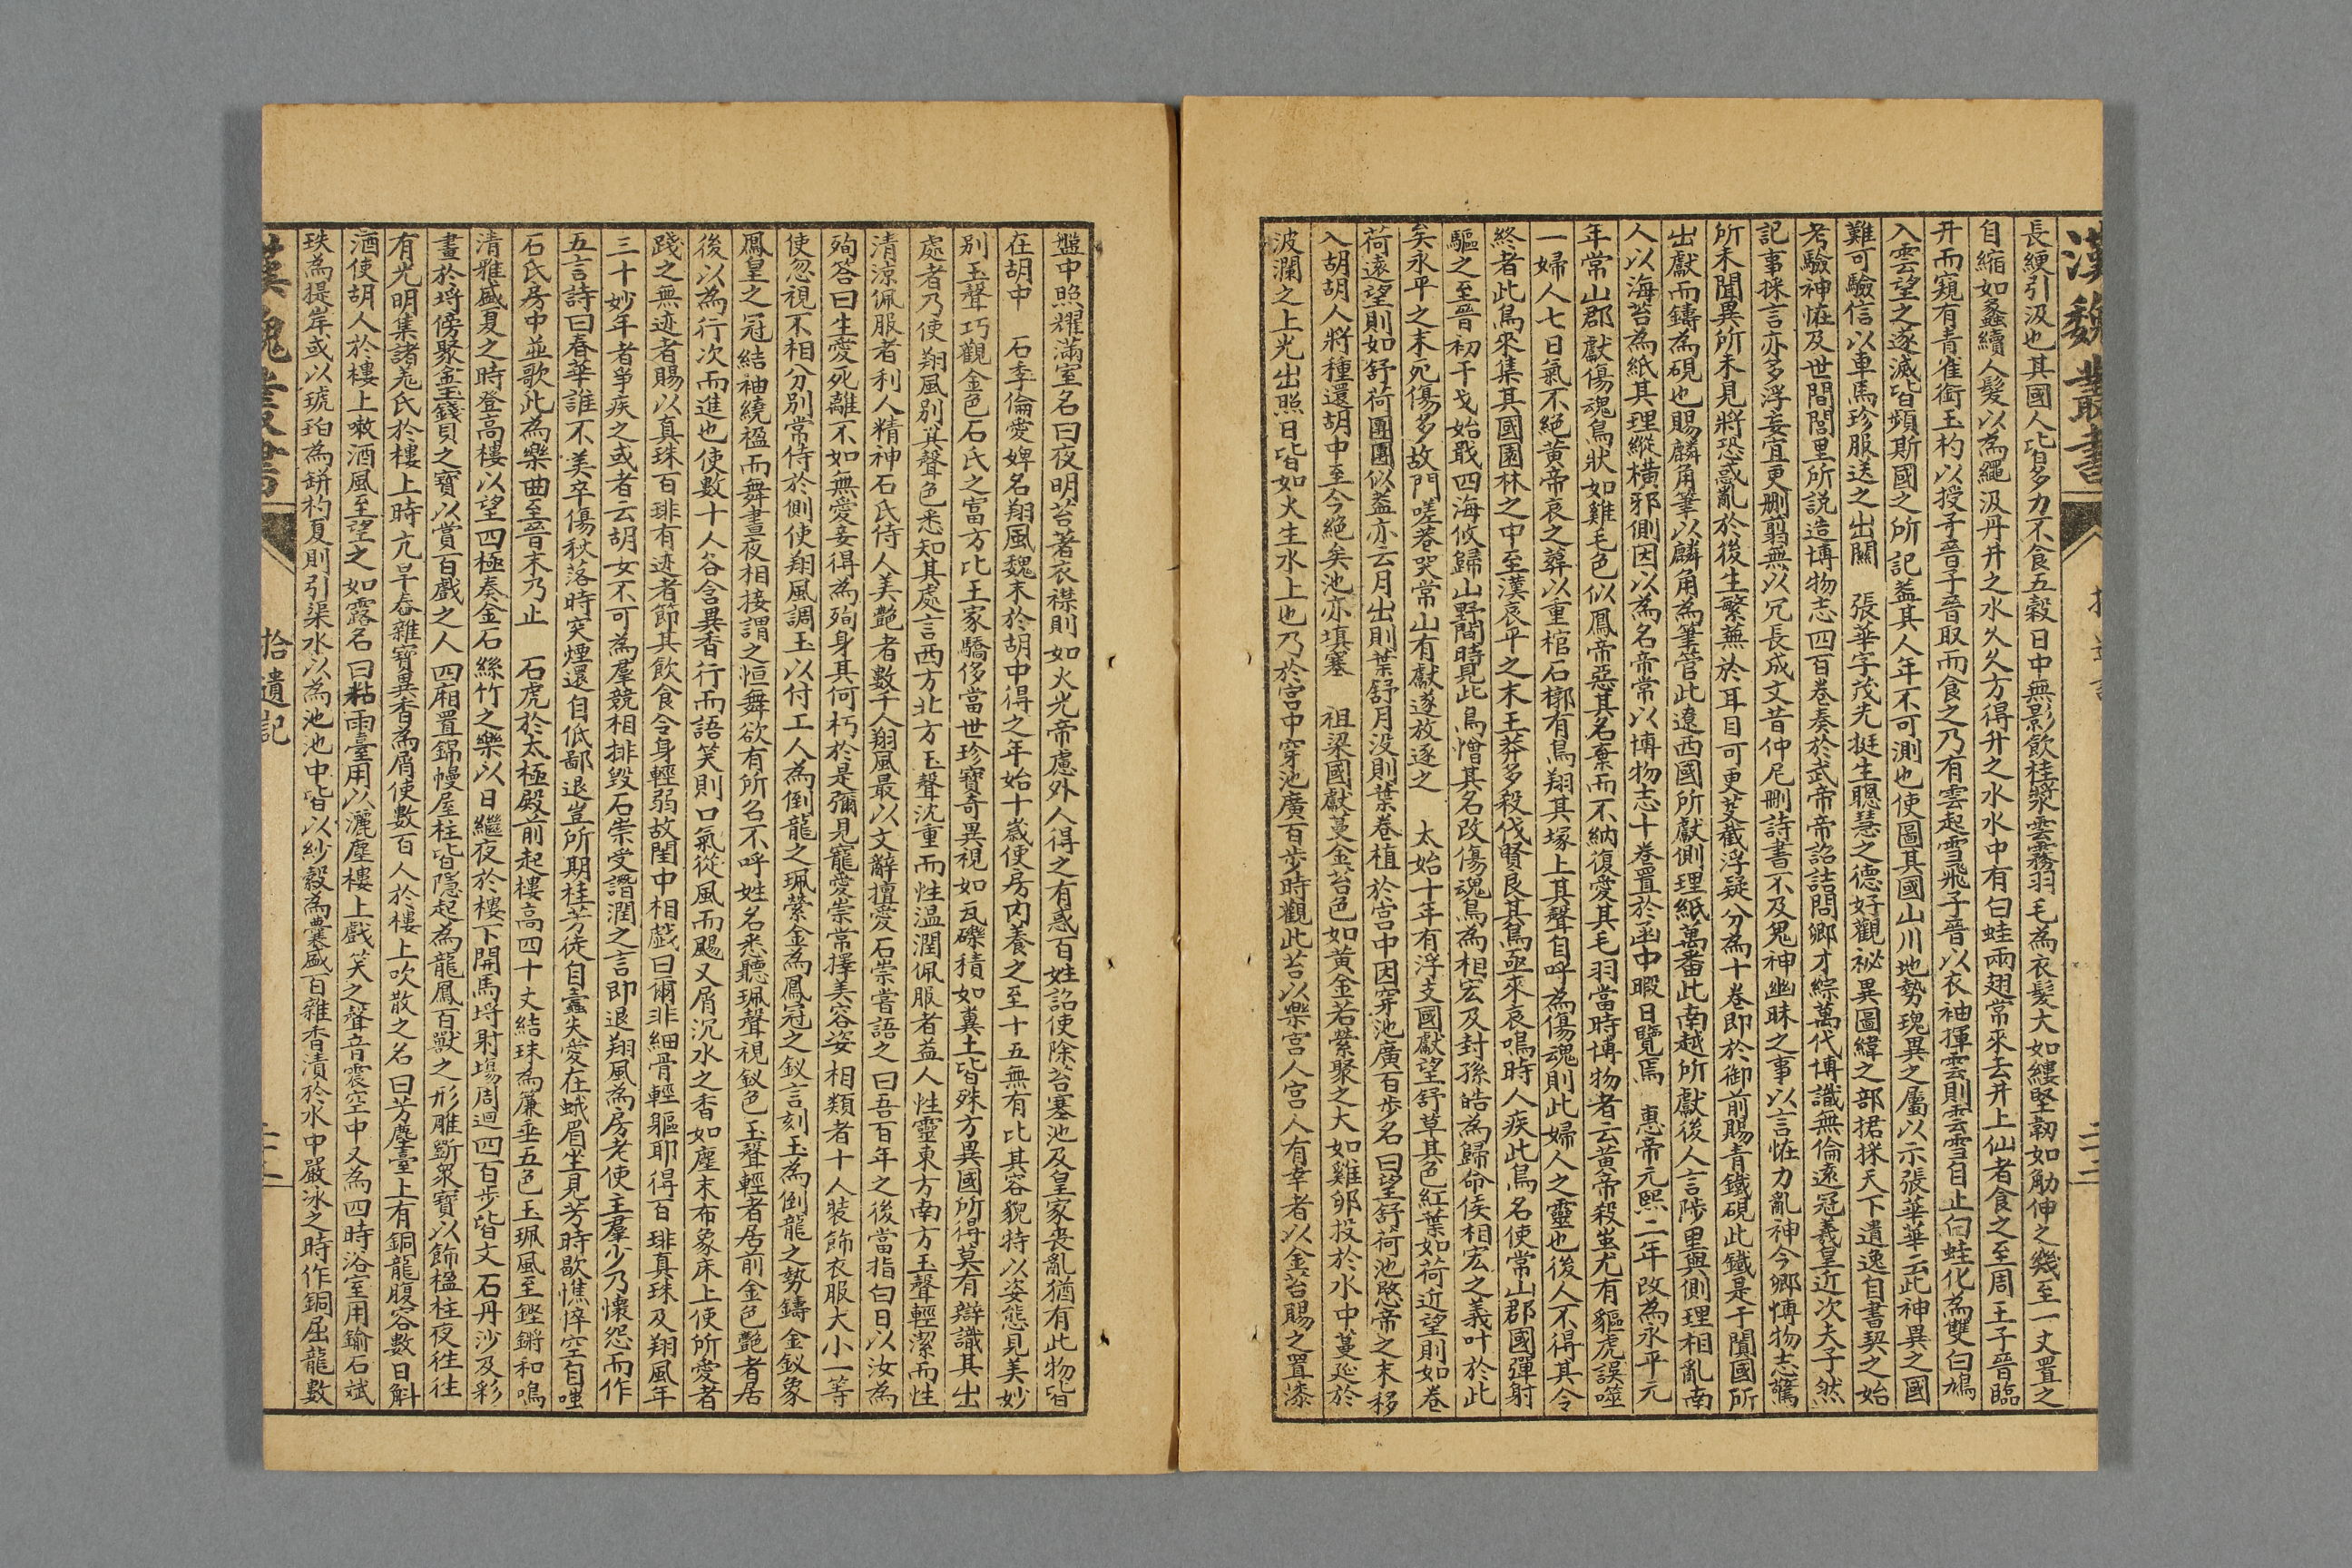 漢魏叢書
長綆引汲也其國人皆多力不食五穀日中無影飲桂漿雲霧羽毛為衣髮大如縷堅韌如筋伸之幾至一丈置之
自縮如蠡續人髮以為繩汲丹井之水久久方得升之水水中有白蛙兩翅常來去井上仙者食之至周王子晉臨
井而窺有青雀銜玉杓以授子晉子晉取而食之乃有雲起雪飛子晉以衣袖揮雲則雲雪自止白蛙化為雙白鳩
入雲望之遂滅皆頻斯國之所記蓋其人年不可測也使圖其國山川地勢瑰異之屬以示張華華云此神異之國
難可驗信以車馬珍服送之出關 張華字茂先挺生聰慧之德好觀祕異圖緯之部捃採天下遺逸自書契之始
考驗神怪及世間閭里所說造博物志四百卷奏於武帝帝詔詰問卿才綜萬代博識無倫遠冠羲皇近次夫子然
記事採言亦多浮妄宜更刪翦無以冗長成文昔仲尼刪詩書不及鬼神幽昧之事以言怪力亂神今卿博物志驚
所未聞異所未見將恐惑亂於後生繁蕪於耳目可更芟截浮疑分為十卷即於御前賜青鐵硯此鐵是于闐國所
出獻而鑄為硯也賜麟角筆以麟角為筆管此遼西國所獻側理紙萬番此南越所獻後人言陟里與側理相亂南
人以海苔為紙其理縱橫邪側因以為名帝常以博物志十卷置於函中暇日覽焉 惠帝元熙二年改為永平元
年常山郡獻傷魂鳥狀如雞毛色似鳳帝惡其名棄而不納復愛其毛羽當時博物者云黃帝殺蚩尤有貙虎誤噬
一婦人七日氣不絕黃帝哀之葬以重棺石槨有鳥翔其塚上其聲自呼為傷魂則此婦人之靈也後人不得其令
終者此鳥來集其國園林之中至漢哀平之末王莽多殺伐賢良其鳥亟來哀鳴時人疾此鳥名使常山郡國彈射
驅之至晉初干戈始戢四海攸歸山野間時見此鳥憎其名改傷魂鳥為相宏及封孫皓為歸命侯相宏之義叶於此
矣永平之末死傷多故門嗟巷哭常山有獻遂放逐之 太始十年有浮支國獻望舒草其色紅葉如荷近望則如卷
荷遠望則如舒荷團團似蓋亦云月出則葉舒月没則葉卷植於宫中因穿池廣百步名曰望舒荷池愍帝之末移
入胡胡人將種還胡中至今絕矣池亦塡塞 祖梁國獻蔓金苔色如黃金若縈聚之大如雞卵投於水中蔓延於
波瀾之上光出照日皆如火生水上也乃於宫中穿池廣百步時觀此苔以樂宫人宫人有幸者以金苔賜之置漆
盤中照耀滿室名曰夜明苔著衣襟則如火光帝慮外人得之有惑百姓詔使除苔塞池及皇家喪亂猶有此物皆
在胡中 石季倫愛婢名翔風魏末於胡中得之年始十歲使房内養之至十五無有比其容貌特以姿態見美妙
別玉聲巧觀金色石氏之富方比王家驕侈當世珍寶奇異視如瓦礫積如糞土皆殊方異國所得莫有辯識其出
處者乃使翔風別其聲色悉知其處言西方北方玉聲沈重而性温潤佩服者益人性靈東方南方玉聲輕潔而性
清涼佩服者利人精神石氏侍人美艷者數千人翔風最以文辭擅愛石崇嘗語之曰吾百年之後當指白日以汝為
殉答曰生愛死離不如無愛妾得為殉身其何朽於是彌見寵愛崇常擇美容姿相類者十人裝飾衣服大小一等
使忽視不相分別常侍於側使翔風調玉以付工人為倒龍之珮縈金為鳳冠之釵言刻玉為倒龍之勢鑄金釵象
鳳皇之冠結袖繞楹而舞晝夜相接謂之恒舞欲有所召不呼姓名悉聽珮聲視釵色玉聲輕者居前金色艷者居
後以為行次而進也使數十人各含異香行而語笑則口氣從風而颺又屑沉水之香如塵末布象床上使所愛者
踐之無迹者賜以真珠百琲有迹者節其飲食令身輕弱故閨中相戲曰爾非細骨輕軀那得百琲真珠及翔風年
三十妙年者爭疾之或者云胡女不可為羣競相排毀石崇受譖潤之言即退翔風為房老使主羣少乃懷怨而作
五言詩曰春華誰不美卒傷秋落時突煙還自低鄙退豈所期桂芳徒自蠹失愛在蛾眉坐見芳時歇憔悴空自嗤
石氏房中並歌此為樂曲至晉末乃止 石虎於太極殿前起樓高四十丈結珠為簾垂五色玉珮風至鏗鏘和鳴
清雅盛夏之時登高樓以望四極奏金石絲竹之樂以日繼夜於樓下開馬埒射場周迴四百步皆文石丹沙及彩
畫於埒傍聚金玉錢貝之寶以賞百戲之人四廂置錦幔屋柱皆隱起為龍鳳百獸之形雕斲衆寶以飾楹柱夜往往
有光明集諸羗氏於樓上時亢旱舂雜寶異香為屑使數百人於樓上吹散之名曰芳塵臺上有銅龍腹容數百斛
酒使胡人於樓上嗽酒風至望之如露名曰粘雨臺用以灑塵樓上戲笑之聲音震空中又為四時浴室用鍮石珷
玞為堤岸或以琥珀為缾杓夏則引渠水以為池池中皆以紗縠為囊盛百雜香漬於水中嚴冰之時作銅屈龍數
漢魏叢書
拾遺記